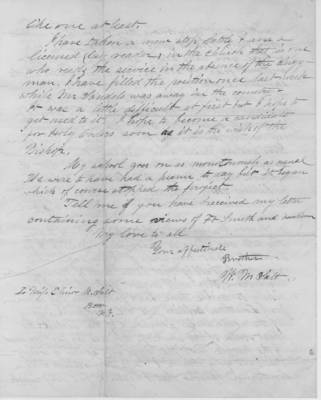 like one at least.
I have taken a new step lately & am a
licensed lay reader, in the Church that is one
who reads the service in the absence of the clergy-
man. I have filled the position once last week
while Mr was away in the country.
It was a little difficult at first but I hope to
get used to it. I hope to become a candidate
for Holy Orders soon as it is the wish of the
Bishop.
My school goes on as monotonously as usual
We were to have had a picnic to day but it began
which of course stopped the project.
Tell me if you have received my letter
containing some views of Ft Smith and
My love to all
Your affectionate
Brother
W. M.
To Miss Elinor